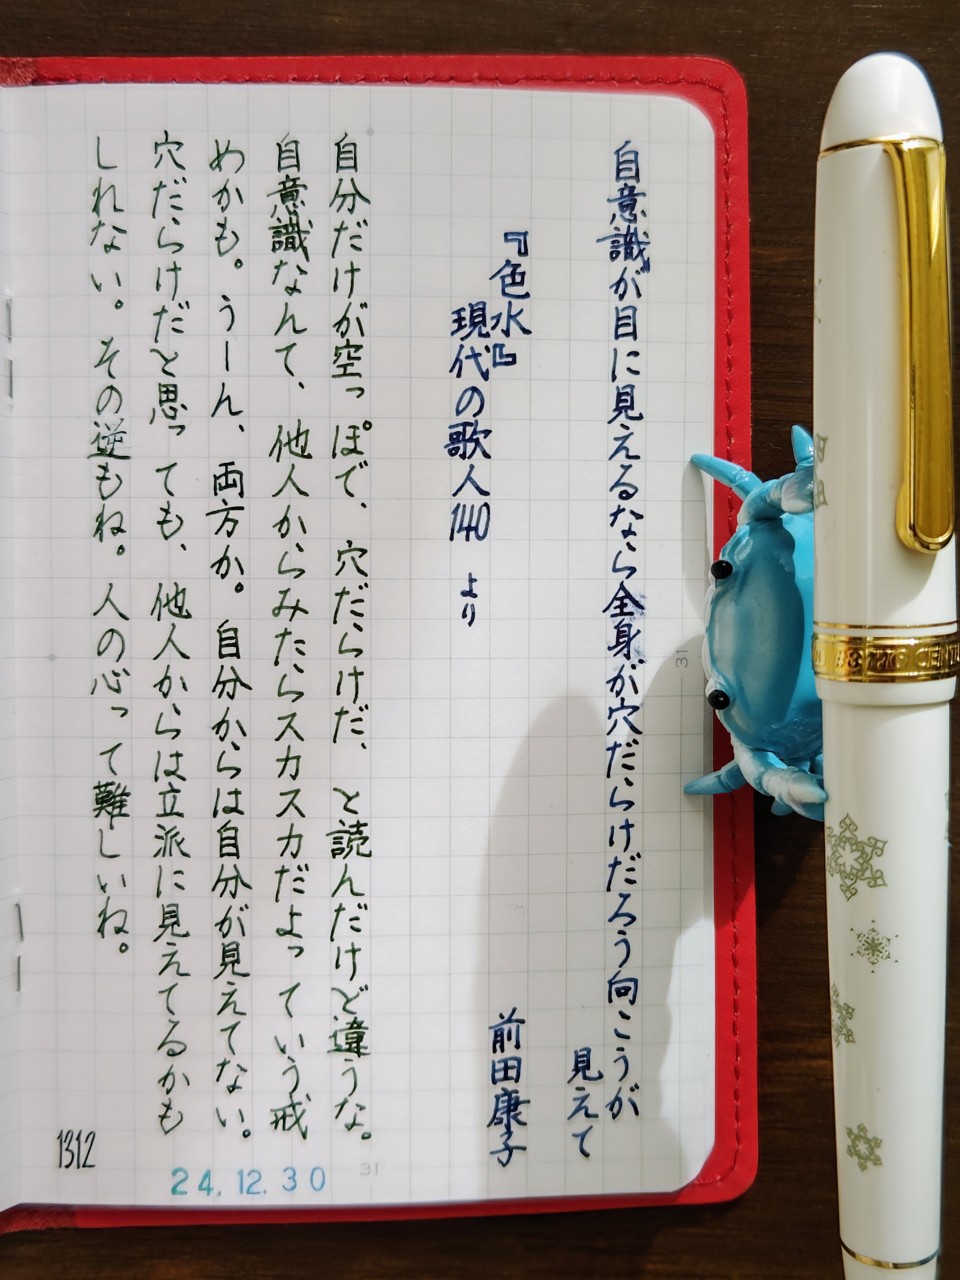 自意識が目に見えるなら全身が穴だらけだろう向こうが
見えて
前田康子
『色水』
現代の歌人140 より
自分だけが空っぽで、穴だらけだ、と読んだけど違うな。
自意識なんて、他人からみたらスカスカだよっていう戒
めかも。うーん、両方か。自分からは自分が見えてない。
穴だらけだと思っても、他人からは立派に見えてるかも
しれない。その逆もね。人の心って難しいね。
1312
24.12.30
31
31